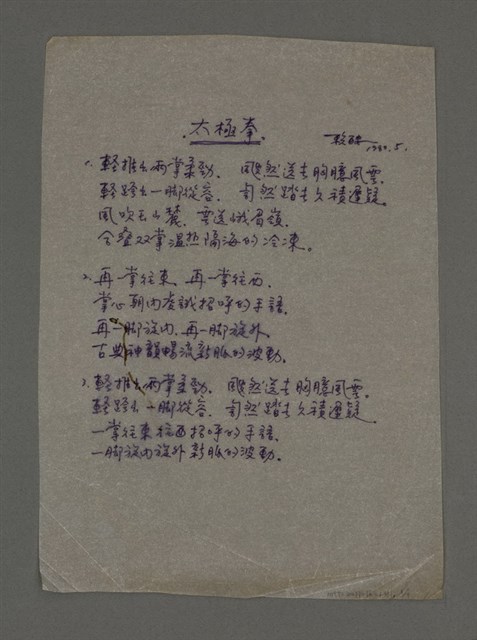 太極拳
1989.5.
1. 輕推出兩掌柔勁、飃然送去胸臆風雲、
輕踏出一脚從容、自然踏去久積遲疑。
風吹玉山麓、雲送峨眉嶺、
合叠双掌溫热隔海的冷凍。
2. 再一掌往東、再一掌往西、
掌心朝內凌誠招呼的手語、
再一脚旋內、再一脚旋外、
古典神韻暢流新脈的波動。
3. 輕推出兩掌柔勁、飃然送去胸臆風雲、
輕踏出一脚從容、自然踏去久積遲疑、
一掌往東往西招呼的手語、
一脚旋內旋外新脈的波動。